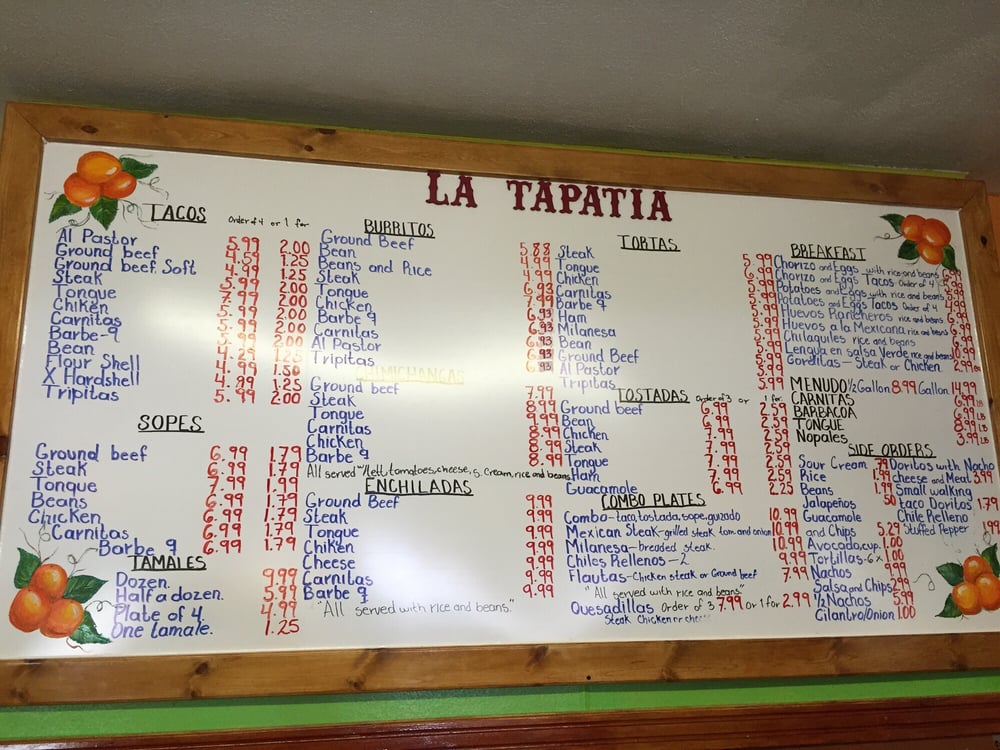 LA TAPATIA
TACOS Order of 4 or 1 for
Al Pastor 5.99 2.00
Ground beef 4.59 1.25
Ground beef. Soft 4.99 1.25
Steak 5.99 2.00
Tongue 7.99 2.00
Chiken 5.99 2.00
Carnitas 5.99 2.00
Barbe-q 5.99 2.00
Bean 4.29 1.25
Flour Shell 4.99 1.50
X Hardshell 4.89 1.25
Tripitas 5.99 2.00
SOPES
Ground beef 6.99 1.79
Steak 6.99 1.79
Tongue 7.99 1.99
Beans 6.99 1.79
Chicken 6.99 1.79
Carnitas 6.99 1.79
Barbe q 6.99 1.79
TAMALES
Dozen. 9.99
Half a dozen. 5.99
Plate of 4. 4.99
One tamale. 1.25
BURRITOS
Ground Beef 5.88
Bean 4.99
Beans and Rice 4.99
Steak 6.93
Tongue 7.99
Chicken 6.93
Barbe q 6.93
Carnitas 6.93
Al Pastor 6.93
Tripitas 6.93
CHIMICHANGAS
Ground beef 7.99
Steak 8.99
Tongue 9.99
Carnitas 8.99
Chicken 8.99
Barbe q 8.99
All served w/lett, tomatoes, cheese, s. cream, rice and beans
ENCHILADAS
Ground Beef 9.99
Steak 9.99
Tongue 9.99
Chiken 9.99
Cheese 9.99
Carnitas 9.99
Barbe q 9.99
"All served with rice and beans."
TORTAS
Steak 5.99
Tongue 6.99
Chicken 5.99
Carnitas 5.99
Barbe q 5.99
Ham 5.99
Milanesa 5.99
Bean 5.99
Ground Beef 5.99
Al Pastor 5.99
Tripitas 5.99
TOSTADAS Order of 3 or 1 for
Ground beef 6.99 2.59
Bean 6.99 2.59
Chicken 7.99 2.59
Steak 7.99 2.59
Tongue 7.99 2.59
Ham 7.99 2.59
Guacamole 6.99 2.25
COMBO PLATES
Combo-taco, tostada, sope, guizado 10.99
Mexican Steak-grilled steak, tom. and onion 10.99
Milanesa-breaded steak. 10.99
Chiles Rellenos-2 9.99
Flautas-Chicken steak or Ground beef 7.99
"All served with rice and beans"
Quesadillas Order of 3 7.99 or 1 for 2.99
Steak Chicken or
BREAKFAST
Chorizo and Eggs with rice and beans
Chorizo and Eggs Tacos Order of 4
Potatoes and Eggs with rice and beans
Potatoes and Eggs Tacos Order of 4
Huevos Rancheros rice and beans
Huevos a la Mexicana rice and beans
Chilaquiles rice and beans
Lengua en salsa Verde rice and beans 10.99
Gorditas-Steak or Chicken 2.99
MENUDO 1/2 Gallon 8.99 Gallon 14.99
CARNITAS 6.99 LB
BARBACOA 6.99 LB
TONGUE 8.99 LB
Nopales 3.99 LB
SIDE ORDERS
Sour Cream .79
Rice 1.99
Beans 1.99
Jalapeños .50
Guacamole
and Chips 5.29
Avocado, cup. 1.00
Tortillas-6x 1.00
Nachos
Salsa and Chips 2.99
1/2 Nachos 5.99
Cilantro/Onion 1.00
Doritos with Nacho
cheese and Meat 3.99
Small walking
taco Doritos 1.79
Chile Relleno
Stuffed Pepper